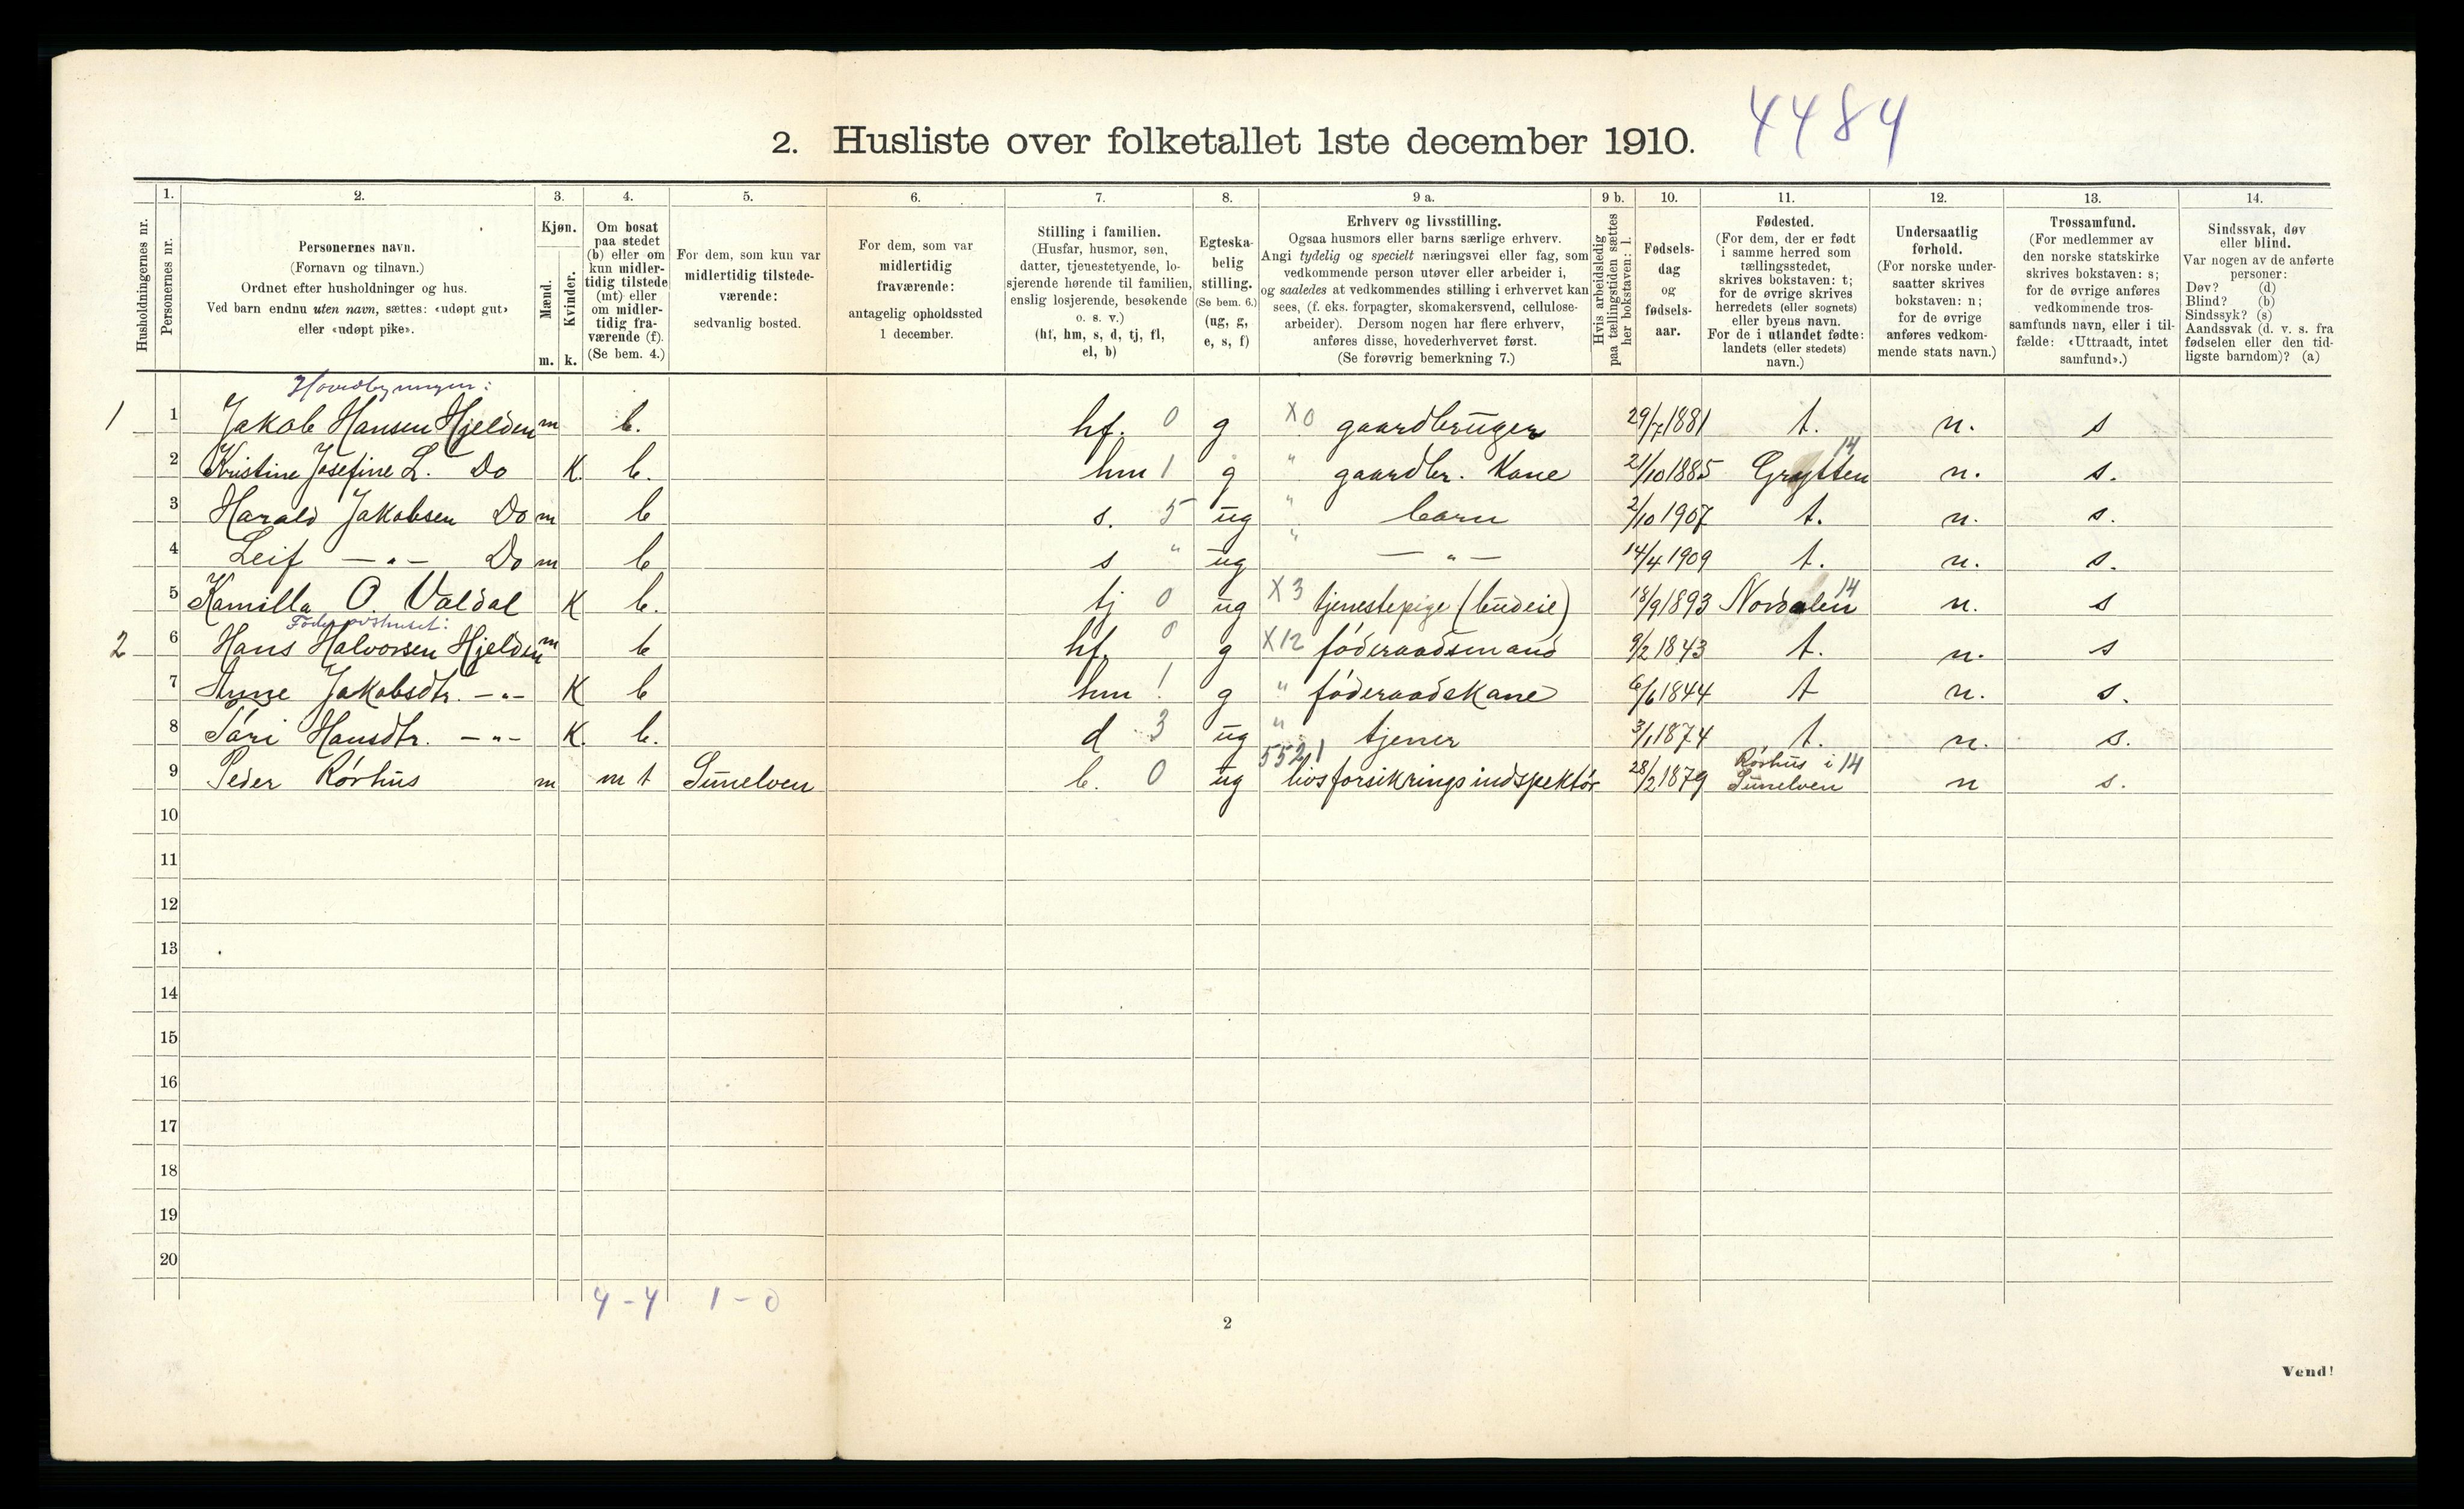 4484
2. Husliste over folketallet 1ste december 1910.
Husholdningernes nr.
1.
Personernes nr.
2.
Personernes navn.
(Fornavn og tilnavn.)
Ordnet efter husholdninger og hus.
Ved barn endnu uten navn, sættes: «udøpt gut»
eller «udøpt pike».
3.
Kjøn.
Mænd.
Kvinder.
m. k.
4.
Om bosat
paa stedet
(b) eller om
kun midler-
tidig tilstede
(mt) eller
om midler-
tidig fra-
værende (f).
(Se bem. 4.)
5.
For dem, som kun var
midlertidig tilstede-
værende:
sedvanlig bosted.
6.
For dem, som var
midlertidig
fraværende:
antagelig opholdssted
1 december.
7.
Stilling i familien.
(Husfar, husmor, søn,
datter, tjenestetyende, lo-
sjerende hørende til familien,
enslig losjerende, besøkende
o. s. v.)
(hf, hm, s, d, tj, fl,
el, b)
8.
Egteska-
belig
stilling.
(Se bem. 6.)
(ug, g,
e, s, f)
9 a.
Erhverv og livsstilling.
Ogsaa husmors eller barns særlige erhverv.
Angi tydelig og specielt næringsvei eller fag, som
vedkommende person utøver eller arbeider i,
og saaledes at vedkommendes stilling i erhvervet kan
sees, (f. eks. forpagter, skomakersvend, cellulose-
arbeider). Dersom nogen har flere erhverv,
anføres disse, hovederhvervet først.
(Se forøvrig bemerkning 7.)
9 b.
Hvis arbeidsledig
paa tællingstiden sættes
her bokstaven: l.
10.
Fødsels-
dag
og
fødsels-
aar.
11.
Fødested.
(For dem, der er født
i samme herred som
tællingsstedet,
skrives bokstaven: t;
for de øvrige skrives
herredets (eller sognets)
eller byens navn.
For de i utlandet fødte:
landets (eller stedets)
navn.)
12.
Undersaatlig
forhold.
(For norske under-
saatter skrives
bokstaven: n;
for de øvrige
anføres vedkom-
mende stats navn.)
13.
Trossamfund.
(For medlemmer av
den norske statskirke
skrives bokstaven: s;
for de øvrige anføres
vedkommende tros-
samfunds navn, eller i til-
fælde: «Uttraadt, intet
samfund».)
14.
Sindssvak, døv
eller blind.
Var nogen av de anførte
personer:
Døv? (d)
Blind? (b)
Sindssyk? (s)
Aandssvak (d. v. s. fra
fødselen eller den tid-
ligste barndom)? (a)
Hovedbygningen:
1 1 Jakob Hansen Hjelden m b. hf. 0 g X0 gaardbruger 29/7 1881 t. n. s
2 Kristine Josefine L. Do K. b. hm 1 g " gaardbr. Kone 21/10 1885 Grytten 14 n. s.
3 Harald Jakobsen Do m b s. 5 ug " barn 2/10 1907 t. n. s.
4 Leif — " — Do m b s " ug " — " — 14/4 1909 t. n. s.
5 Kamilla O. Valdal K b. tj 0 ug X3 tjenestepige (budeie) 18/9 1893 Nordalen 14 n. s
2 6 Hans Halvorsen Hjelden m b hf. 0 g X12 føderaadsmand 9/2 1843 t. n. s
7 Anne Jakobsdtr. — " — K b hm 1 g " føderaadskone 6/6 1844 t n. s.
8 Siri Hansdtr. — " — K. b. d 3 ug " tjener 3/1 1874 t. n. s.
9 Peder Rørhus m mt Sunelven b. 0 ug 552,1 livsforsikringsindspektør 28/2 1879 Rørhus i Sunelven 14 n s.
10
11
12
13
14
15
16
17
18
19
20
4 - 4 1 - 0
2
Vend!